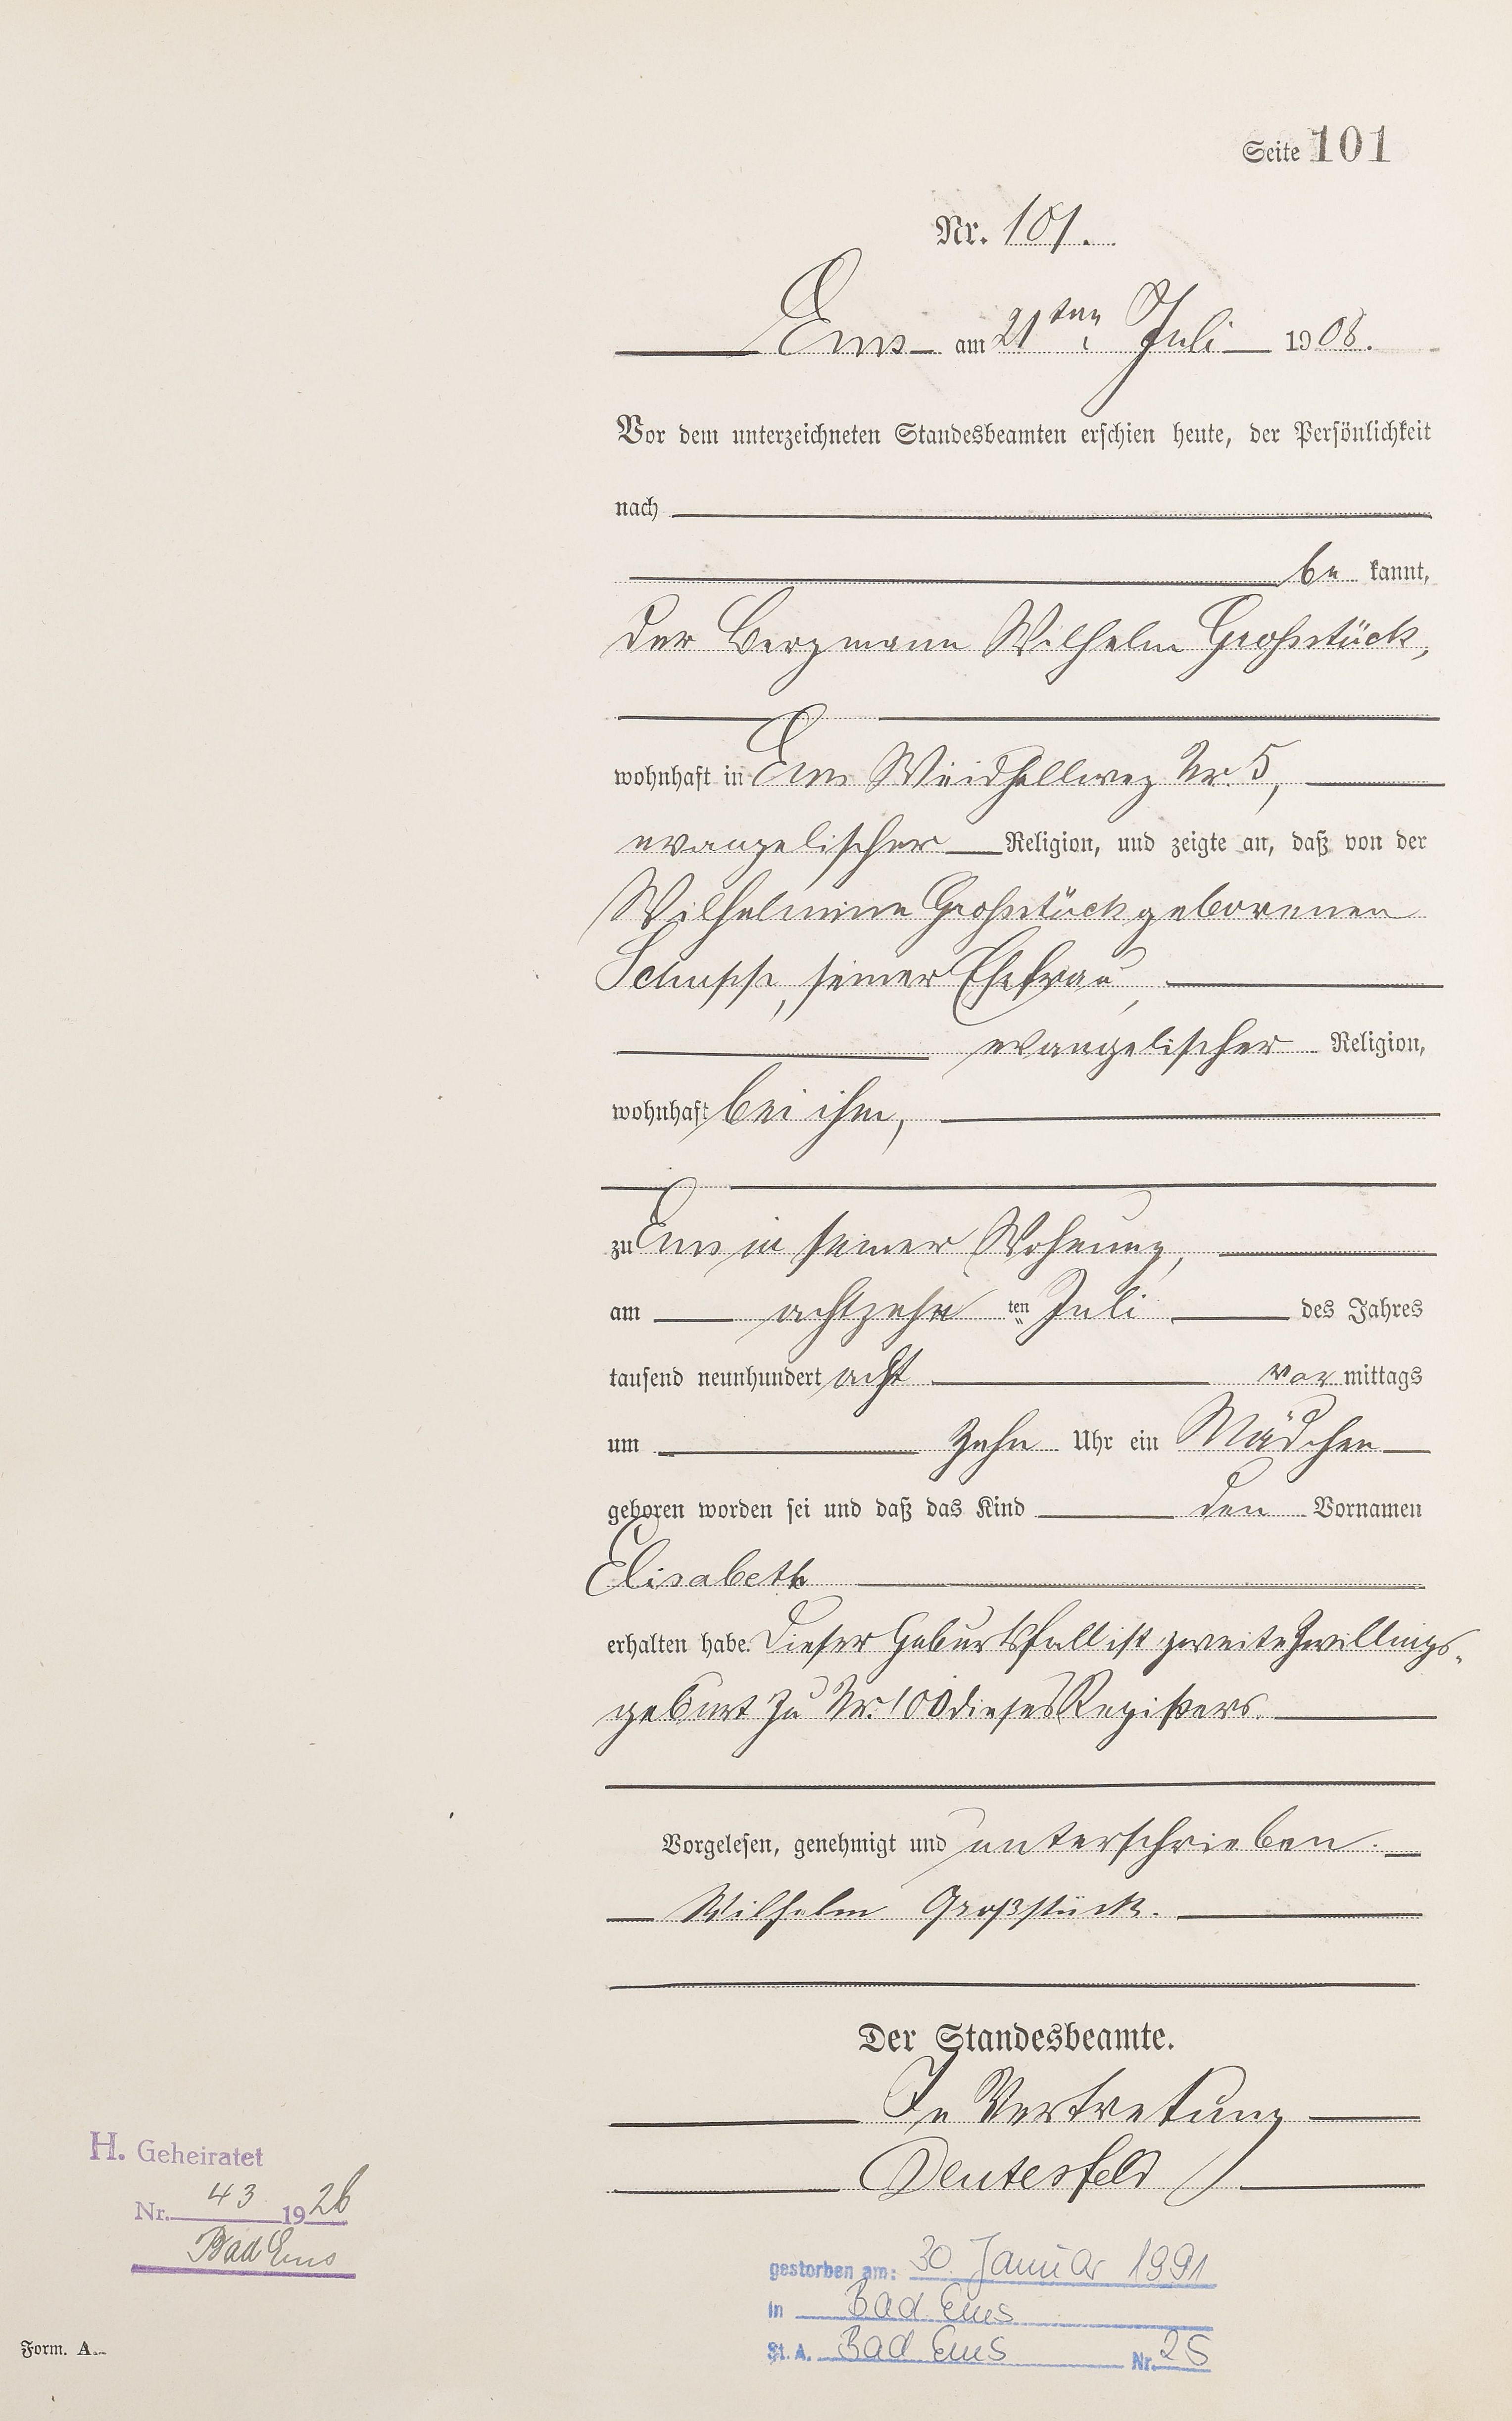 Seite 101
Nr. 101.
Ems am 21ten Juli 1908.
Vor dem unterzeichneten Standesbeamten erschien heute, der Persönlichkeit
nach
be kannt,
der Bergmann Wilhelm Großstück,
wohnhaft in Ems Weidhellweg Nr. 5,
evangelischer Religion, und zeigte an, daß von der
Wilhelmine Großstück geborenen
Schupp, seiner Ehefrau,
evangelischer Religion,
wohnhaft bei ihm,
zu Ems in seiner Wohnung,
am achtzehn ten Juli des Jahres
tausend neunhundert acht vor mittags
um zehn Uhr ein Mädchen
geboren worden sei und daß das Kind den Vornamen
Elisabeth
erhalten habe. Dieser Geburtsfall ist zweite Zwillings-
geburt zu Nr. 100 dieses Registers.
Vorgelesen, genehmigt und unterschrieben.
Wilhelm Großstück.
Der Standesbeamte.
In Vertretung
Deutesfeld
H. Geheiratet
Nr. 43 1926
Bad Ems
gestorben am: 30. Januar 1991
in Bad Ems
St. A. Bad Ems Nr. 25
Form. A.